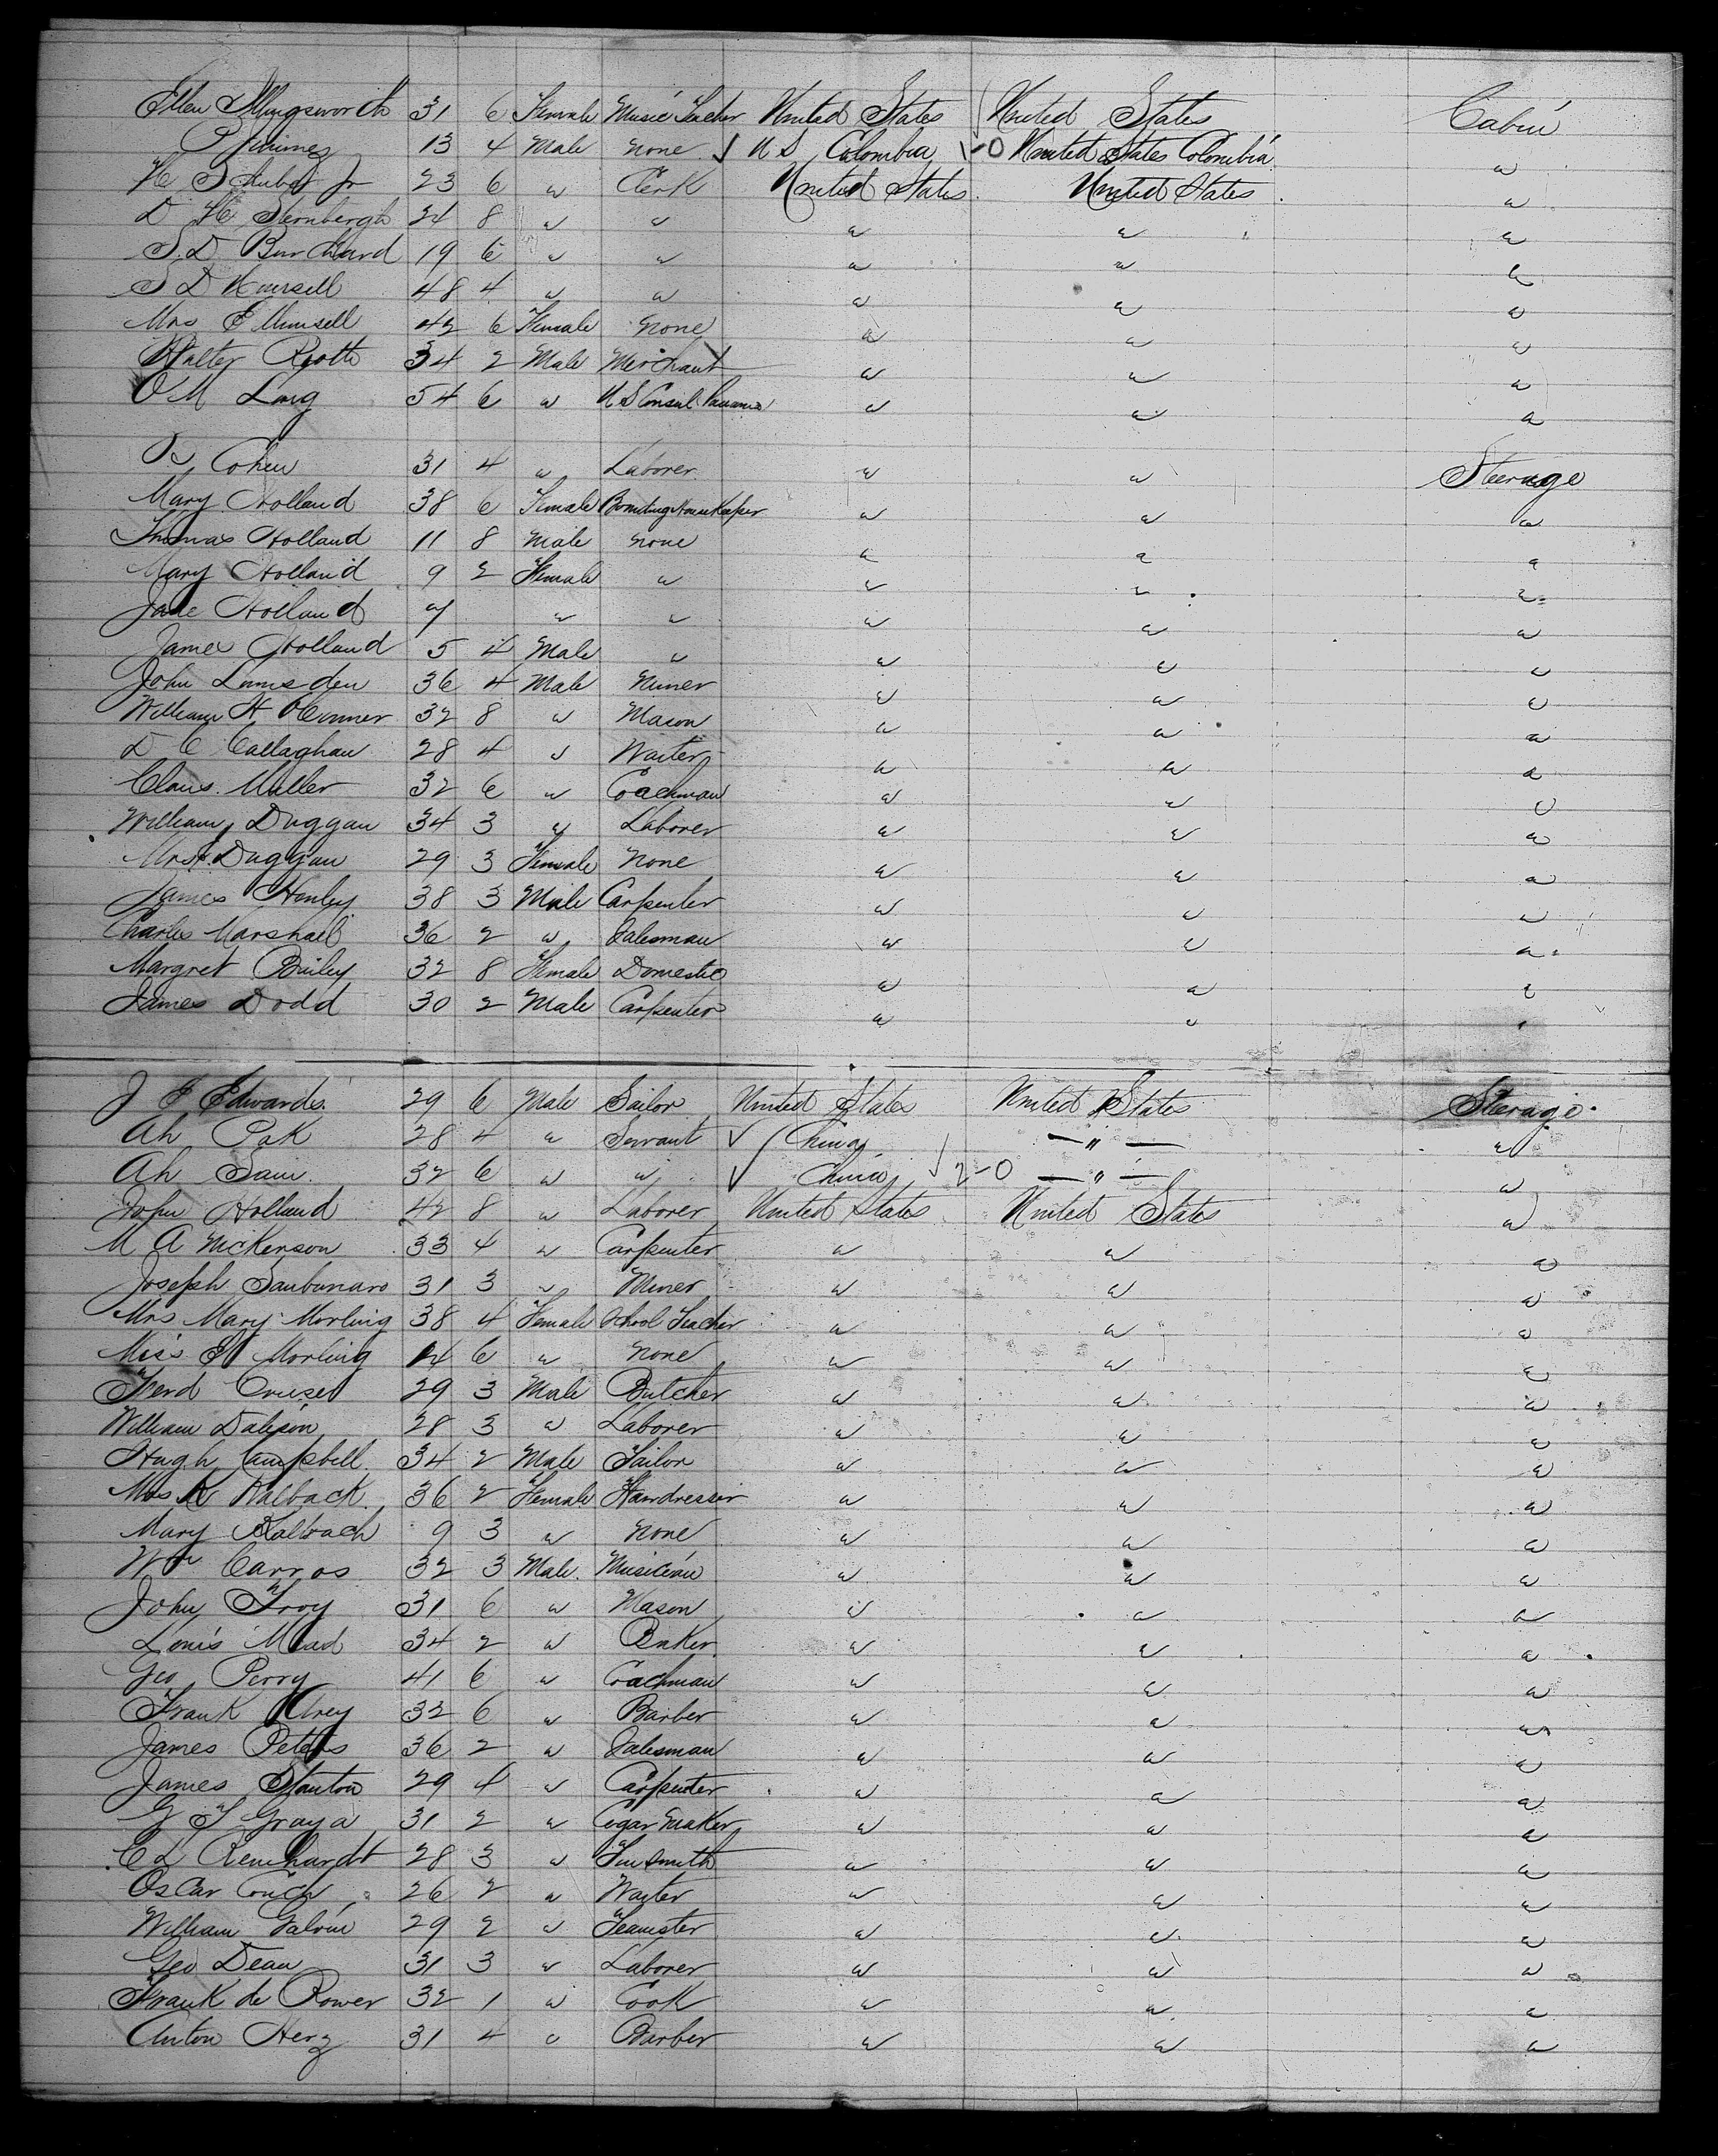 Ellen Illingsworth 31 6 Female Music Teacher United States United States Cabin
P Jimines 13 4 Male None U S Colombia -0 United States Colombia "
H Schubert Jr 23 6 " Clerk United States United States "
D H Sternbergh 24 8 " " " " "
S. D Burchard 19 6 " " " " "
S D Munsell 48 4 " " " " "
Mrs E Munsell 42 6 Female None " " "
Walter Rioth 34 2 Male Merchant " " "
O M Long 54 6 " U S Consul Panama " " "
Cohen 31 4 " Laborer " " Steerage
Mary Holland 38 6 Female Boarding House Keeper " " "
Thomas Holland 11 8 Male None " " "
Mary Holland 9 2 Female " " " "
Jane Holland 7 " " " " "
James Holland 5 4 Male " " " "
John Lumsden 36 4 Male Miner " " "
William H OConner 32 8 " Mason " " "
D C Callaghan 28 4 " Waiter " " "
Claus. Muller 32 6 " Coachman " " "
William Duggan 34 3 " Laborer " " "
Mrs Duggan 29 3 Female None " " "
James Henley 38 3 Male Carpenter " " "
Charles Marshall 36 2 " Salesman " " "
Margret Bailey 32 8 Female Domestic " " "
James Dodd 30 2 Male Carpenter " " "
J F Edwards 29 6 Male Sailor United States United States Steerage
Ah Pak 28 4 " Servant China — " — "
Ah Sam 32 6 " " China 2-0 — " — "
John Holland 42 8 " Laborer United States United States "
M A Nickerson 33 4 " Carpenter " " "
Joseph 31 3 " Miner " " "
Mrs Mary Morling 38 4 Female School Teacher " " "
Miss E Morling 14 6 " None " " "
Ferd Cruse 29 3 Male Butcher " " "
William Dalison 28 3 " Laborer " " "
Hugh Campbell 34 2 Male Sailor " " "
Mrs K Kalback 36 2 Female Hairdresser " " "
Mary Kalbach 9 3 " None " " "
Wm Carros 32 3 Male Musician " " "
John Troy 31 6 " Mason " " "
Louis Mead 34 2 " Baker " " "
Geo Perry 41 6 " Coachman " " "
Frank Urey 32 6 " Barber " " "
James Peters 36 2 " Salesman " " "
James Stanton 29 4 " Carpenter " " "
G F Graya 31 2 " Cegar Maker " " "
C L Reinhardt 28 3 " Tinsmith " " "
Oscar Couch 26 2 " Waiter " " "
William Galvin 29 2 " Teamster " " "
Geo Dean 31 3 " Laborer " " "
Frank de Rower 32 1 " Cook " " "
Anton Herz 31 4 " Barber " " "